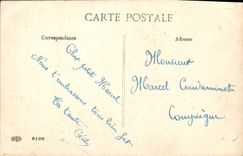 CARTE POSTALE
Correspondance
Adresse
Cher petit Marcel
Nous t'embrassons tous bien fort
Ta tante
Monsieur
Marcel
Compiègne
ELD